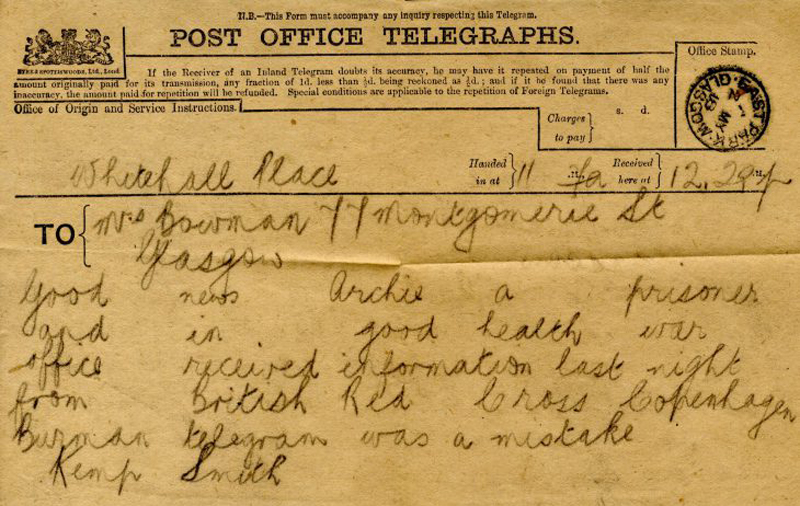 N.B.—This Form must accompany any inquiry respecting this Telegram.
POST OFFICE TELEGRAPHS.
Office Stamp.
If the Receiver of an Inland Telegram doubts its accuracy, he may have it repeated on payment of half the
amount originally paid for its transmission, any fraction of 1d. less than ½d. being reckoned as ½d.; and if it be found that there was any
inaccuracy, the amount paid for repetition will be refunded. Special conditions are applicable to the repetition of Foreign Telegrams.
Office of Origin and Service Instructions.
s. d.
Charges to pay
EAST PARK · GLASGOW
1 MY
Whitehall Place
Handed in at 11
Received here at 12.29 p
TO Mrs Bowman 77 Montgomerie St
Glasgow
Good news Archie a prisoner
and in good health war
office received information last night
from British Red Cross Copenhagen
Burman telegram was a mistake
Kemp Smith